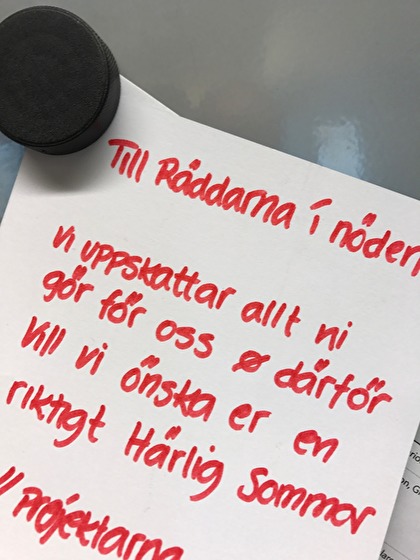 Till Räddarna i nöden
Vi uppskattar allt ni
gör för oss & därför
Vill vi önska er en
riktigt Härlig Sommar
// Projektarna